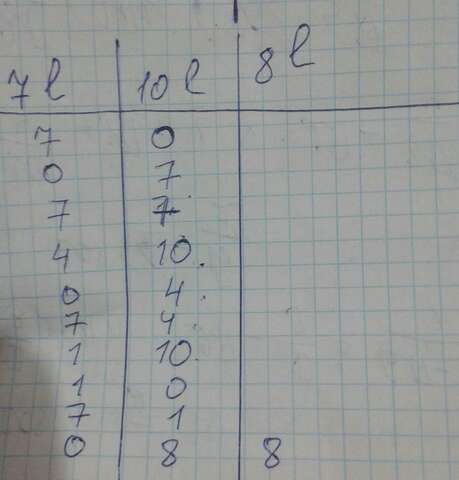 7 l 10 l 8 l
7 0
0 7
7 7
4 10.
0 4.
7 4.
1 10.
1 0
7 1
0 8 8